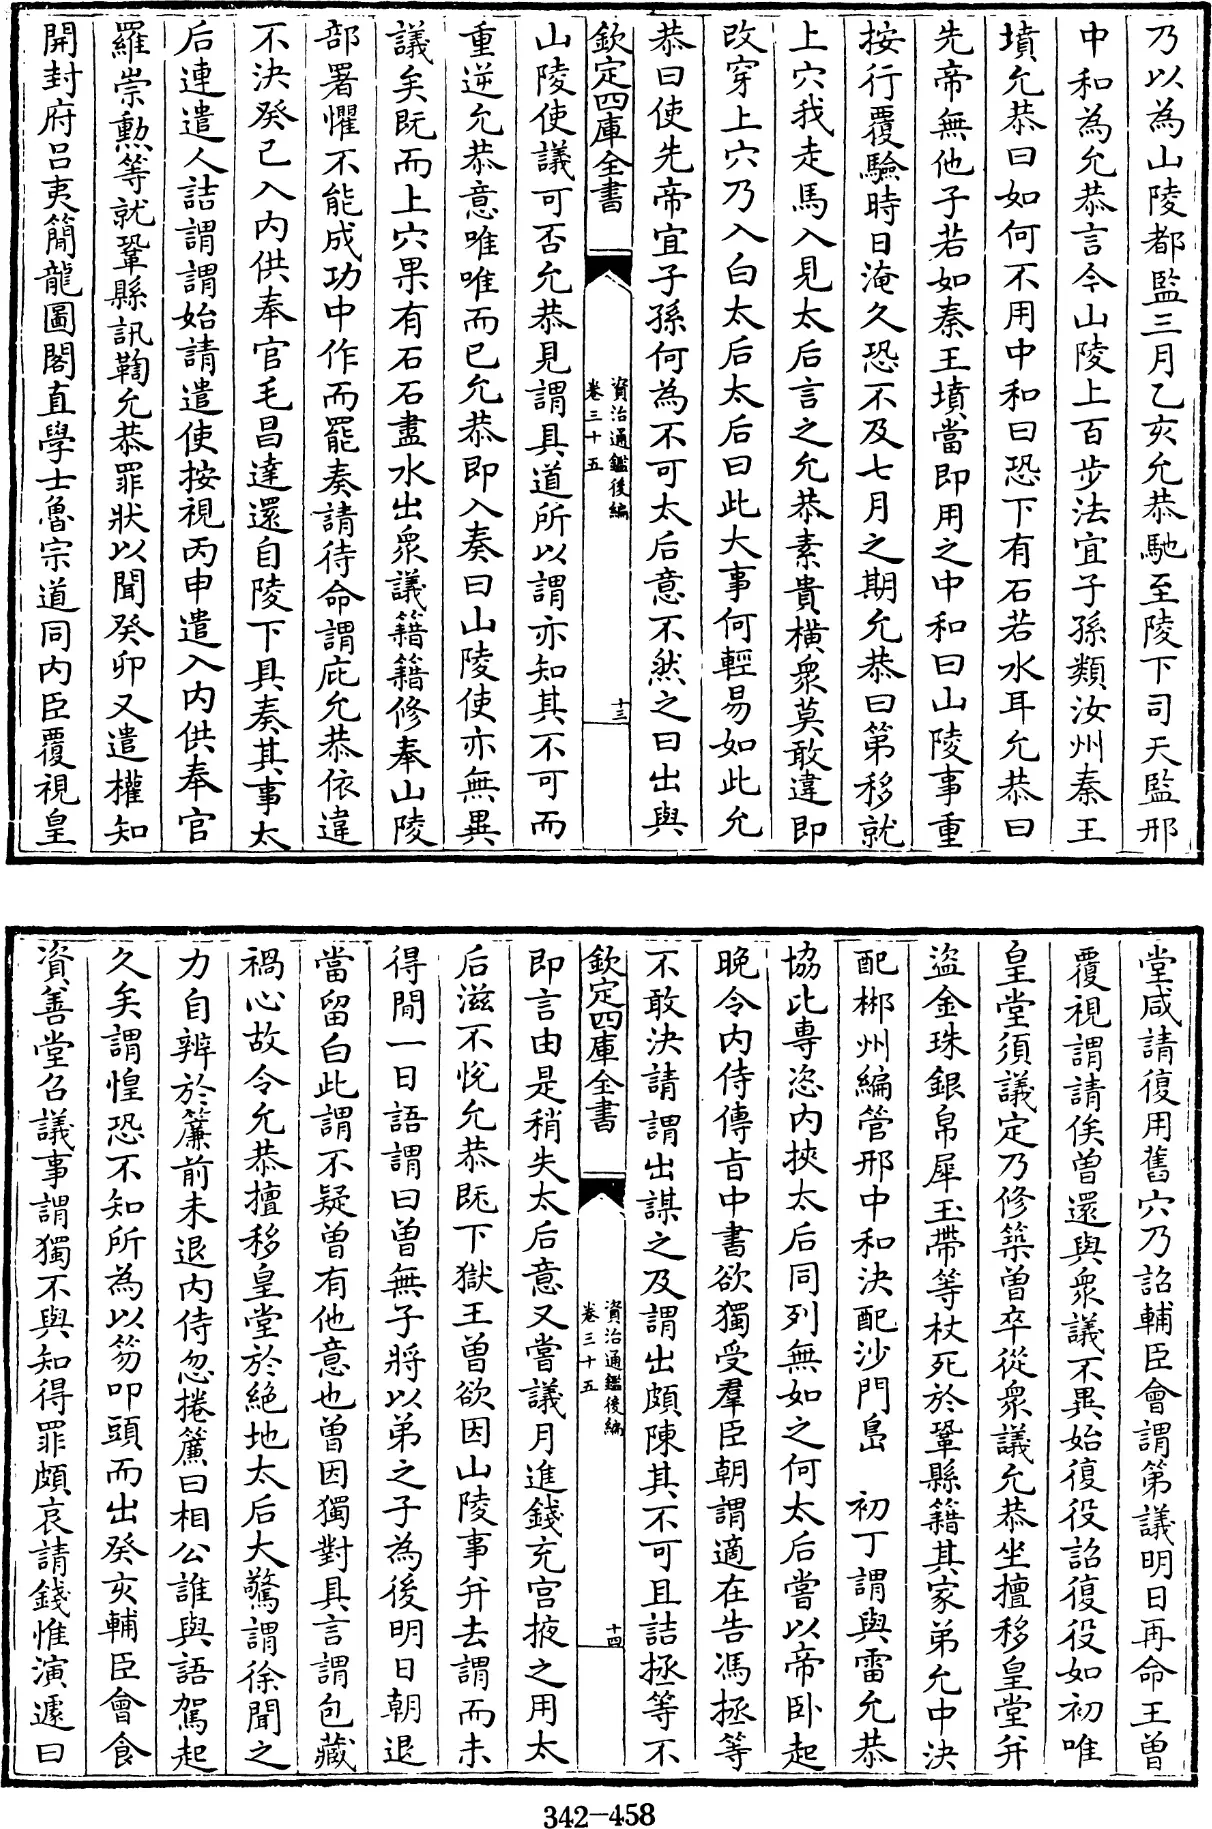 乃以為山陵都監三月乙亥允恭馳至陵下司天監邢
中和為允恭言今山陵上百步法宜子孫類汝州秦王
墳允恭曰如何不用中和曰恐下有石若水耳允恭曰
先帝無他子若如秦王墳當即用之中和曰山陵事重
按行覆驗時日淹久恐不及七月之期允恭曰第移就
上穴我走馬入見太后言之允恭素貴橫衆莫敢違即
改穿上穴乃入白太后太后曰此大事何輕易如此允
恭曰使先帝宜子孫何為不可太后意不然之曰出與
欽定四庫全書
資治通鑑後編
卷三十五
十三
山陵使議可否允恭見謂具道所以謂亦知其不可而
重逆允恭意唯唯而已允恭即入奏曰山陵使亦無異
議矣既而上穴果有石石盡水出衆議籍籍修奉山陵
部署懼不能成功中作而罷奏請待命謂庇允恭依違
不決癸己入內供奉官毛昌達還自陵下具奏其事太
后連遣人詰謂謂始請遣使按視丙申遣入內供奉官
羅崇勲等就鞏縣訊鞫允恭罪狀以聞癸卯又遣權知
開封府呂夷簡龍圖閣直學士魯宗道同內臣覆視皇
堂咸請復用舊穴乃詔輔臣會謂第議明日再命王曾
覆視謂請俟曾還與衆議不異始復役詔復役如初唯
皇堂須議定乃修築曾卒從衆議允恭坐擅移皇堂并
盜金珠銀帛犀玉帶等杖死於鞏縣籍其家弟允中決
配郴州編管邢中和決配沙門島　初丁謂與雷允恭
協比專恣內挾太后同列無如之何太后嘗以帝卧起
晚令內侍傳旨中書欲獨受羣臣朝謂適在告馮拯等
不敢決請謂出謀之及謂出頗陳其不可且詰拯等不
欽定四庫全書
資治通鑑後編
卷三十五
十四
即言由是稍失太后意又嘗議月進錢充宮掖之用太
后滋不悅允恭既下獄王曾欲因山陵事并去謂而未
得間一日語謂曰曾無子將以弟之子為後明日朝退
當留白此謂不疑曾有他意也曾因獨對具言謂包藏
禍心故令允恭擅移皇堂於絶地太后大驚謂徐聞之
力自辨於簾前未退內侍忽捲簾曰相公誰與語駕起
久矣謂惶恐不知所為以笏叩頭而出癸亥輔臣會食
資善堂召議事謂獨不與知得罪頗哀請錢惟演遽曰
342-458